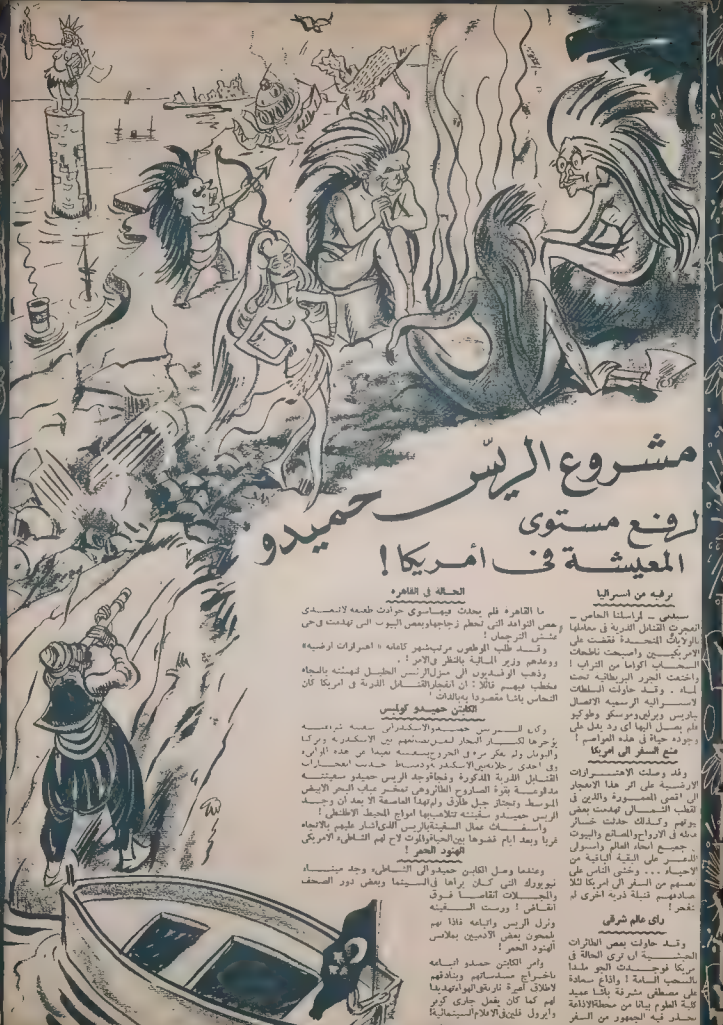 مشروع الريّس حميدو
لرفع مستوى
المعيشة فى أمريكا !
برقيه من استراليا
سيدنى — لمراسلنا الخاص —
انفجرت القنابل الذرية فى معاملها
بالولايات المتحدة فقضت على
الامريكيين واصبحت ناطحات
السحاب اكواما من التراب !
واختفت الجزر البريطانيه تحت
الماء . وقد حاولت السلطات
الاستراليه الرسميه الاتصال
بباريس وبرلين وموسكو وطوكيو
فلم يصل اليها أى رد يدل على
وجود حياة فى هذه العواصم !
منع السفر الى امريكا
وقد وصلت الاهتزازات
الارضية على اثر هذا الانفجار
الى اقصى المعمورة والذين فى
القطب الشمالى تهدمت بعض
بيوتهم وكذلك حدثت خسائر
فى الارواح والمصانع والبيوت
جميع انحاء العالم واستولى
الذعر على البقية الباقية من
الاحياء ... وخشى الناس على
نفسهم من السفر الى امريكا لئلا
تصادفهم قنبلة ذرية اخرى لم
تنفجر !
راى عالم شرقى
وقد حاولت بعض الطائرات
الحبشية ان ترى الحالة فى
امريكا فوجدت الجو ملبدا
بالسحب السامة ! واذاع سعادة
على مصطفى مشرفة باشا عميد
كلية العلوم بيانا من محطة الاذاعة
يحذر فيه الجمهور من السفر
الحالة فى القاهره
اما القاهره فلم يحدث فيها سوى حوادث طفيفه لا تتعدى
بعض النوافذ التى تحطم زجاجها وبعض البيوت التى تهدمت فى حى
عشش الترجمان !
وقد طلب الموظفون مرتب شهر كاعانه « اهتزازات ارضيه »
ووعدهم وزير المالية بالنظر فى الامر ! .
وذهب الوفديون الى منزل الرئيس الجليل لتهنئته بالنجاه
فخطب فيهم قائلا : ان انفجار القنابل الذرية فى امريكا كان
النحاس باشا مقصودا به بالذات !
الكابتن حميدو كولبس
وكان الريس حميدو الاسكندرانى سفينه شراعيه
يؤجرها لكبار التجار لنقل بضائعهم بين الاسكندريه وتركيا
واليونان ولم يفكر مرة فى الخروج بسفينته بعيدا عن هذه الموانى
وفى احدى رحلاته بين الاسكندريه ودمياط حدثت انفجارات
القنابل الذرية المذكورة وفوجىء الريس حميدو بسفينته
مدفوعة بقوة الصاروخ الطائر وهى تمخر عباب البحر الابيض
المتوسط وتجتاز جبل طارق ولم تهدأ العاصفة الا بعد ان وجد
الريس حميدو سفينته تتلاعب بها امواج المحيط الاطلنطى !
واستغاث عمال السفينة بالريس الذى اشار عليهم بالاتجاه
غربا وبعد ايام قضوها بين الحياة والموت لاح لهم الشاطىء الامريكى
الهنود الحمر !
وعندما وصل الكابتن حميدو الى الشاطىء وجد ميناء
نيويورك التى كان يراها فى السينما وبعض دور الصحف
والمجلات انقاضا فوق
انقاض ! ورست السفينه
ونزل الريس واتباعه فاذا بهم
يلمحون بعض الآدميين بملابس
الهنود الحمر !
وأمر الكابتن حميدو اتباعه
باخراج مسدساتهم وبنادقهم
لاطلاق اعيرة ناريه فى الهواء تهديدا
لهم كما كان يفعل جارى كوبر
وايرول فلين فى الافلام السينمائية !